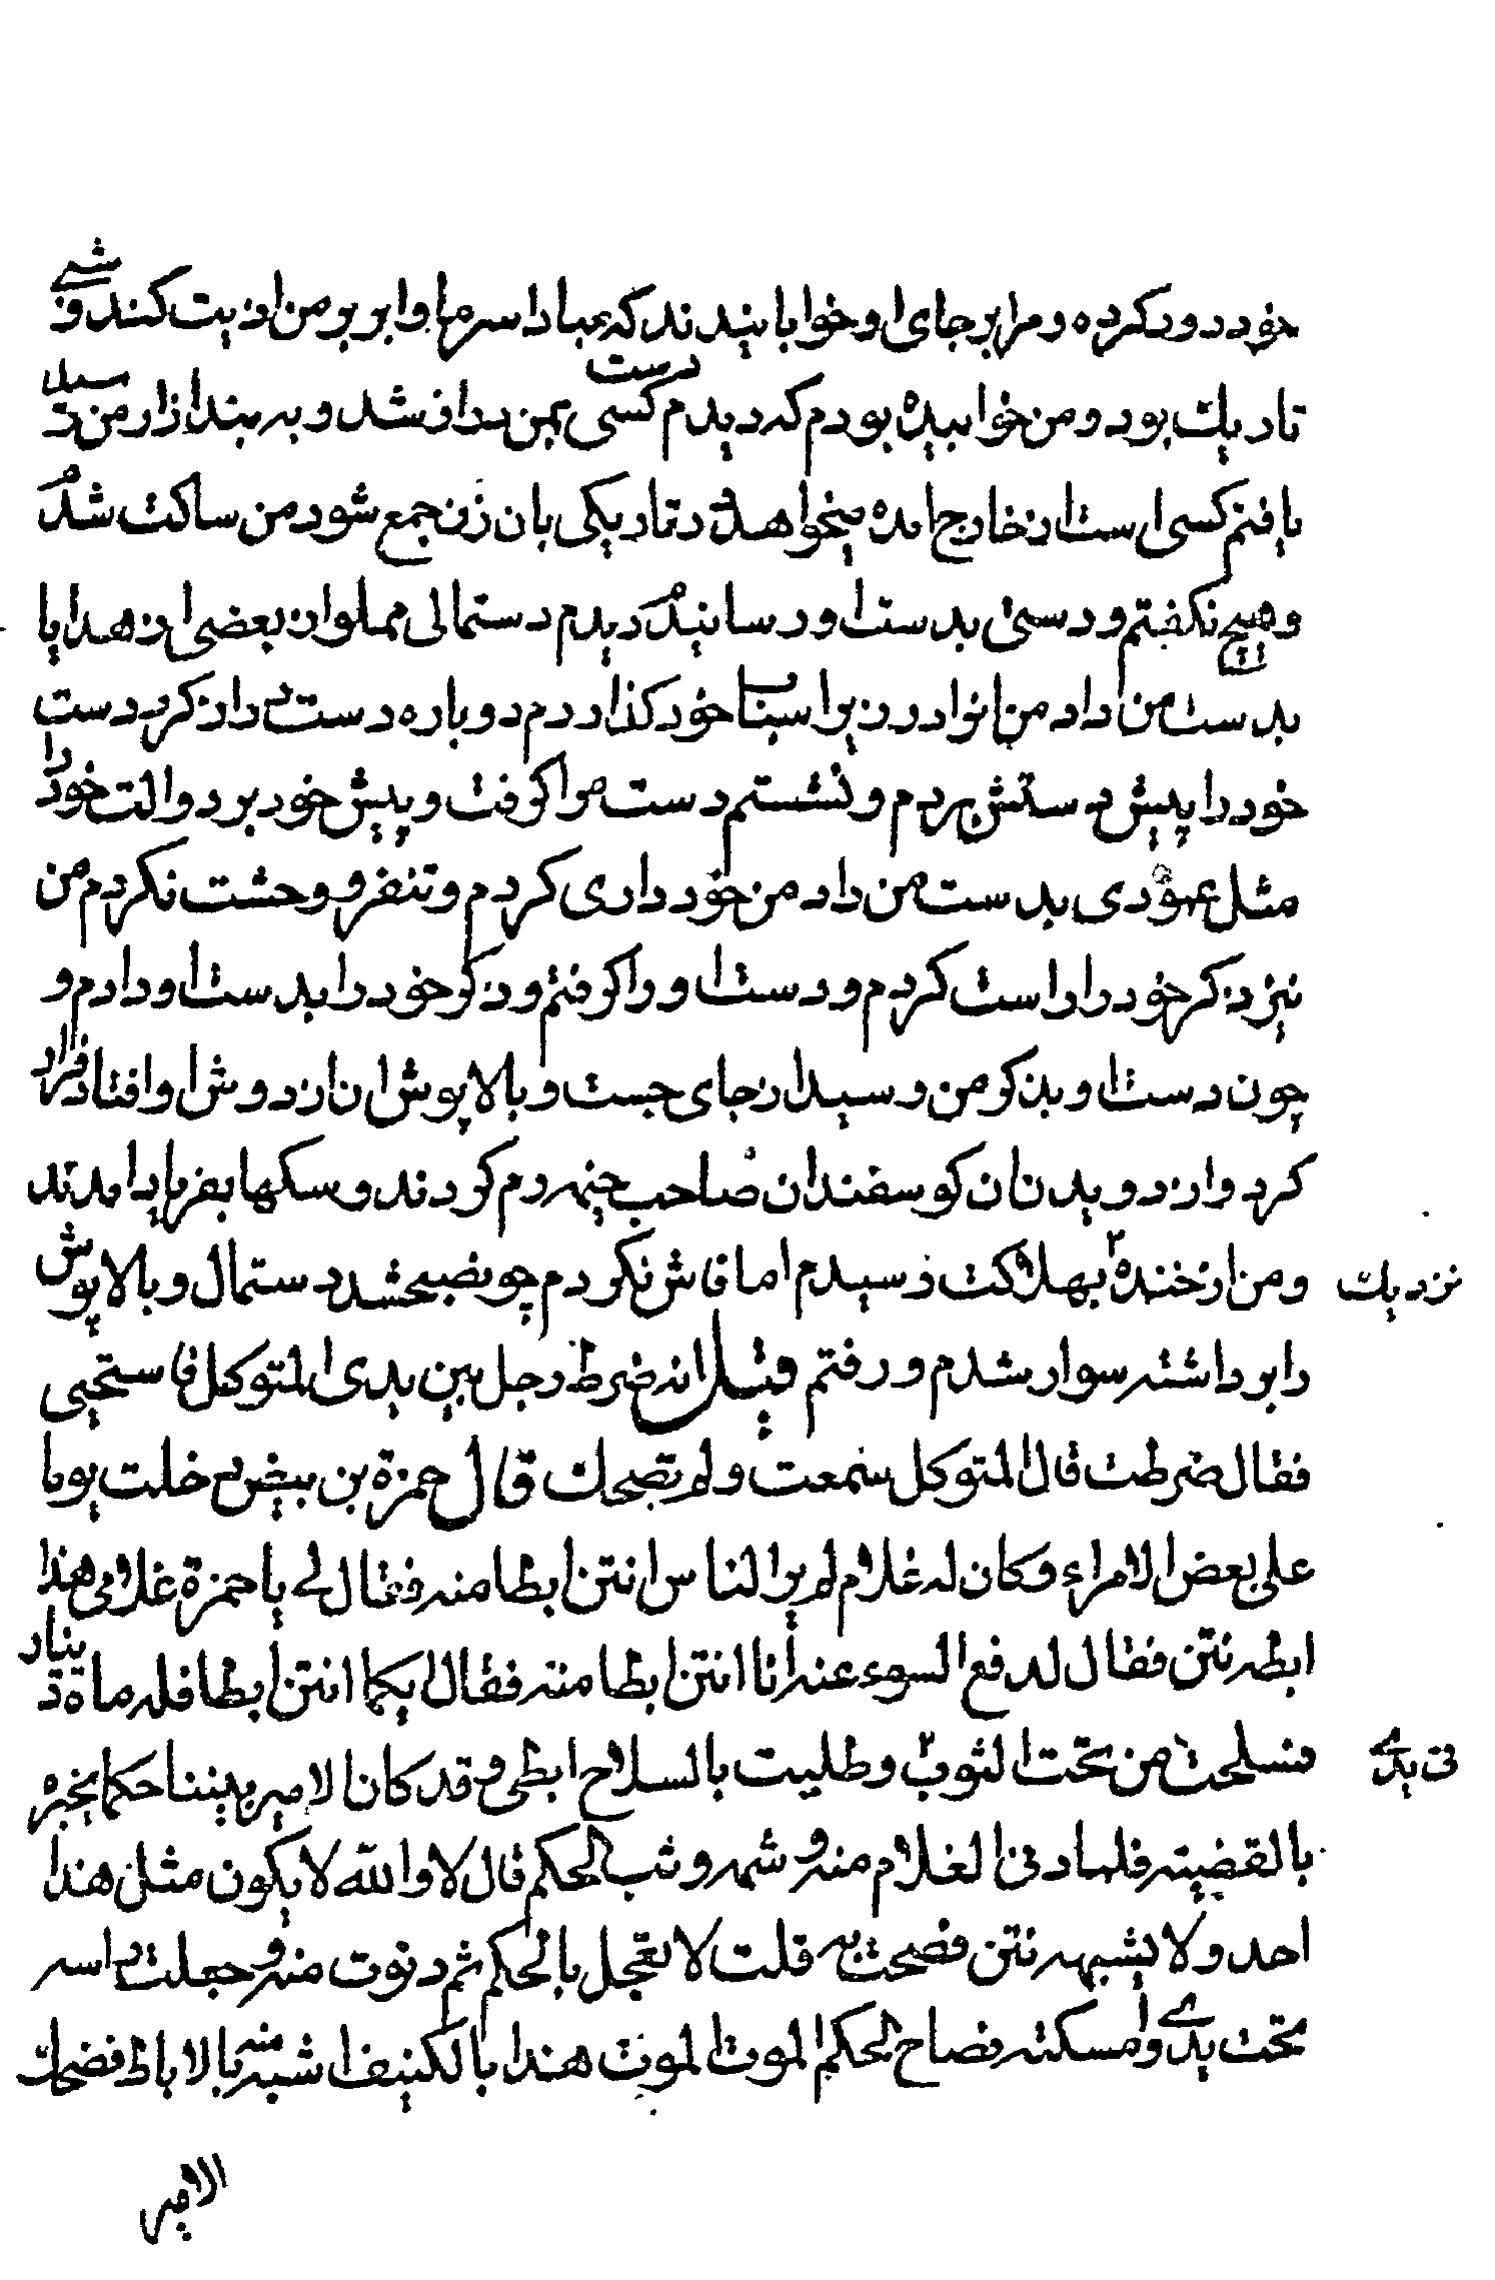 خود دور کرده و مرا بر جای او خوابانیدند که مبادا سرما و ابر بر من اذیت کند و شبی
تاریك بود و من خوابیده بودم که دیدم کسی بمن دراز شد و به بند ازار من دست رسید
یافتم کسی است از خارج امده میخواهد در تاریکی بان زن جمع شود من ساکت شدم
و هیچ نکفتم و دستی بدست او رسانیدم دیدم دستمالی مملو از بعضی از هدایا
بدست من داد من انرا در زیر اسباب خود کذاردم دوباره دست دراز کرد دست
خود را پیش دستش بردم و نشستم دست مرا کرفت و پیش خود برد و الت خود را
مثل عمودی بدست من داد من خود داری کردم و تنفر و وحشت نکردم من
نیز ذکر خود را راست کردم و دست او را کرفتم و ذکر خود را بدست او دادم و
چون دست او بذکر من رسید از جای جست و بالاپوش ان از دوش او افتاد فرار
کرد و از دویدن ان کوسفندان صاحب خیمه رم کردند و سکها بفریاد امدند
و من از خنده بهلاکت رسیدم اما فاش نکردم چو صبح شد دستمال و بالاپوش
نزدیك
را برداشته سوار شدم و رفتم قیل انه ضرط رجل بین یدی المتوکل فاستحیی
فقال ضرطت قال المتوکل سمعت ولم تضحك قال حمزة بن بیض دخلت یوما
علی بعض الامراء وکان له غلام لم یر الناس انتن ابطا منه فقال لی یا حمزة غلامی هذا
ابطه نتن فقال لدفع السوء عنه انا انتن ابطا منه فقال ایکما انتن ابطا فله مأة دینار
فسلحت من تحت الثوب وطلیت بالسلاح ابطی وقد کان الامیر بیننا حکما یخبره
فی یدی
بالقضیة فلما دنی الغلام منه وشمه وثب الحکم قال لا والله لا یکون مثل هذا
احد ولا یشبهه نتن فصحت به قلت لا تعجل بالحکم ثم دنوت منه وجعلت راسه
تحت یدی وامسکته فصاح الحکم الموت الموت هذا بالکنیف اشبه منه بالاباط فضحك
الامیر